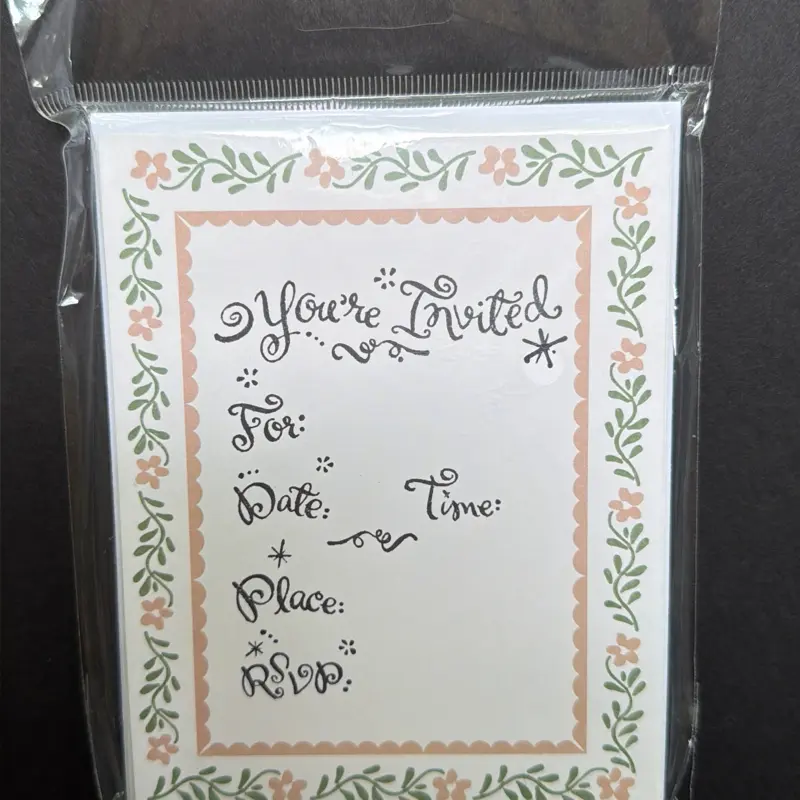 You're Invited
For:
Date: Time:
Place:
RSVP: